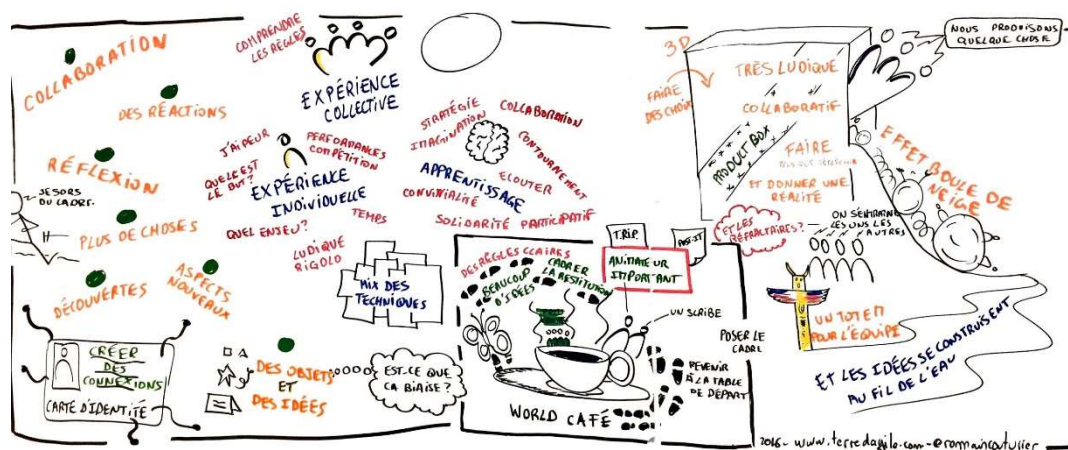 COLLABORATION
DES RÉACTIONS
RÉFLEXION
JE SORS
DU CADRE.
PLUS DE CHOSES
DÉCOUVERTES
ASPECTS
NOUVEAUX
CRÉER
DES
CONNEXIONS
CARTE D'IDENTITÉ
DES OBJETS
ET
DES IDÉES
COMPRENDRE
LES RÈGLES
EXPÉRIENCE
COLLECTIVE
J'AI PEUR
QUEL EST
LE BUT?
PERFORMANCES
COMPÉTITION
EXPÉRIENCE
INDIVIDUELLE
QUEL ENJEU?
TEMPS
LUDIQUE
RIGOLO
MIX DES
TECHNIQUES
EST-CE QUE
ÇA BIAISE?
STRATÉGIE
IMAGINATION
COLLABORATION
CONTOURNEMENT
ÉCOUTER
APPRENTISSAGE
CONVIVIALITÉ
SOLIDARITÉ PARTICIPATIF
DES RÈGLES CLAIRES
BEAUCOUP
D'IDÉES
CADRER
LA RESTITUTION
WORLD CAFÉ
T.R.I.P.
POST-IT
ANIMATEUR
IMPORTANT
UN SCRIBE
POSER LE
CADRE
REVENIR
À LA TABLE
DE DÉPART
3D
FAIRE
DES CHOIX
TRÈS LUDIQUE
COLLABORATIF
PRODUCT BOX
FAIRE
ET DONNER UNE
RÉALITÉ
ET LES
RÉFRACTAIRES?
NOUS PRODUISONS
QUELQUE CHOSE
EFFET BOULE DE
NEIGE
ON S'ENTRAINE
LES UNS LES
AUTRES
UN TOTEM
POUR L'ÉQUIPE
ET LES IDÉES SE CONSTRUISENT
AU FIL DE L'EAU
2016 - www.terredagile.com - @romaincouturier